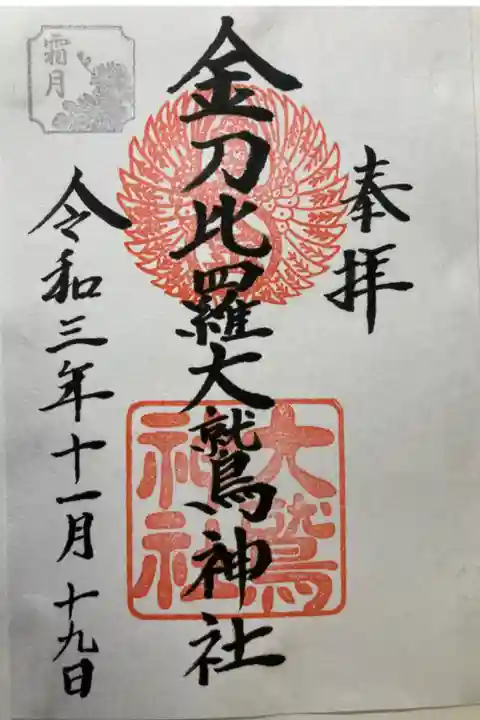 奉拝
金刀比羅大鷲神社
大鷲
神社
令和三年十一月十九日
霜月